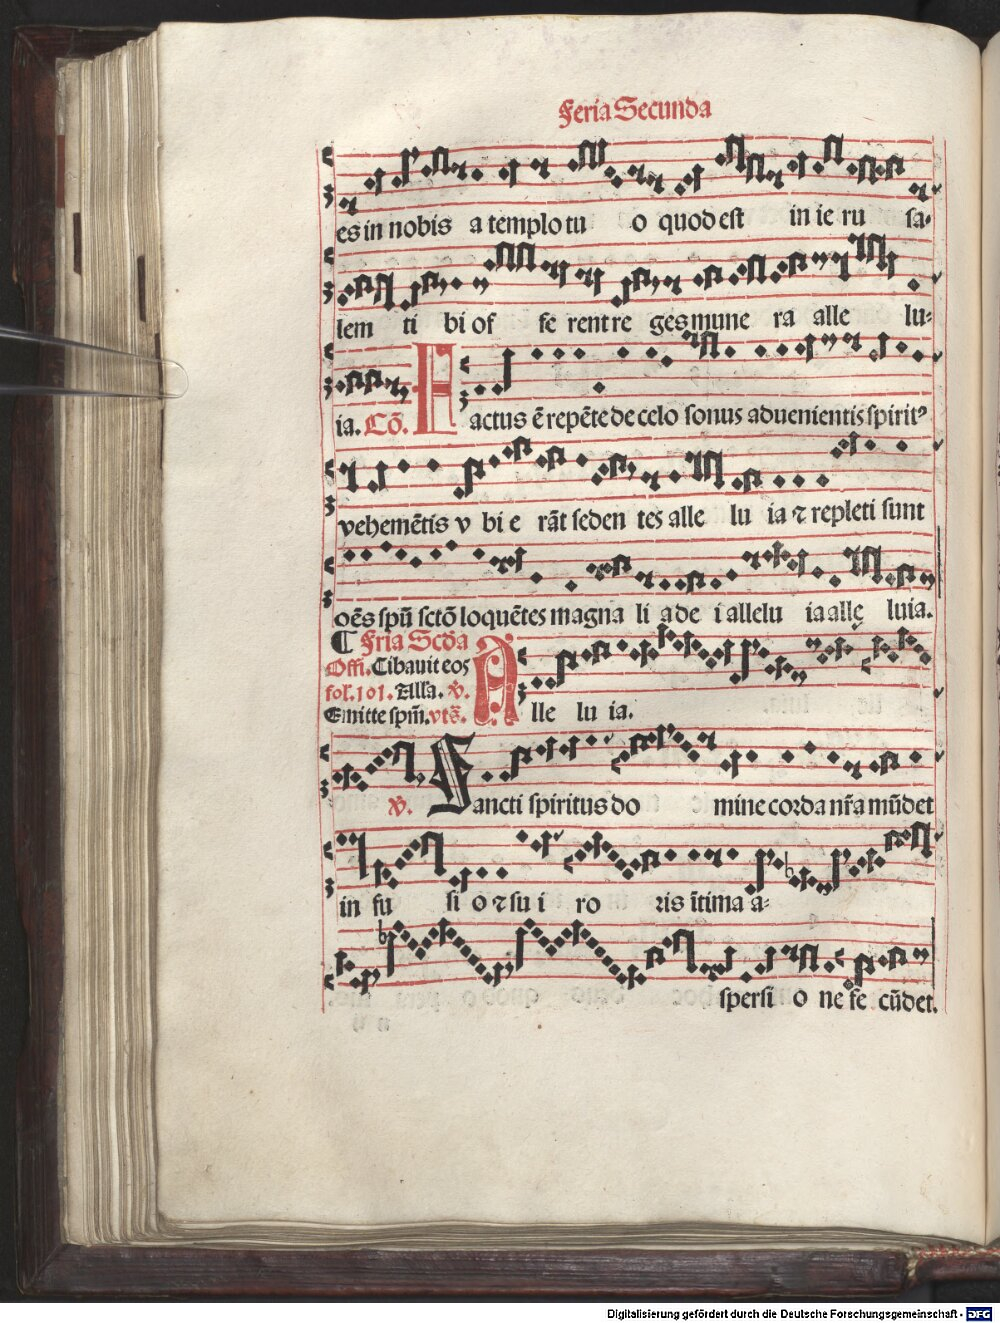 Feria Secunda
es in nobis a templo tu o quod est in ie ru sa-
lem ti bi of fe rent re ges mune ra alle lu-
ia. Cō. Factus ē repēte de celo sonus aduenientis spiritꝰ
vehemētis v bi e rāt seden tes alle lu ia ⁊ repleti sunt
oēs spū sctō loquētes magna li a de i allelu ia alle luia.
¶ Fria Scda
Offi. Cibauit eos
fol. 101. Alla. ℣.
Emitte spm̄. vts̄.
Alle lu ia.
℣. Sancti spiritus do mine corda nr̄a mūdet
in fu si o ⁊ su i ro ris ītima a-
spersi o ne fe cūdet.
Digitalisierung gefördert durch die Deutsche Forschungsgemeinschaft - DFG